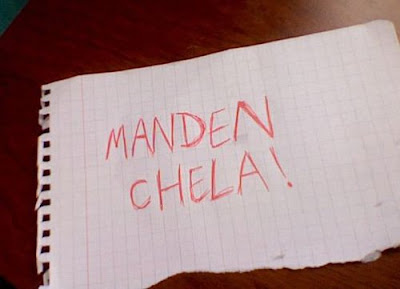 MANDEN
CHELA!